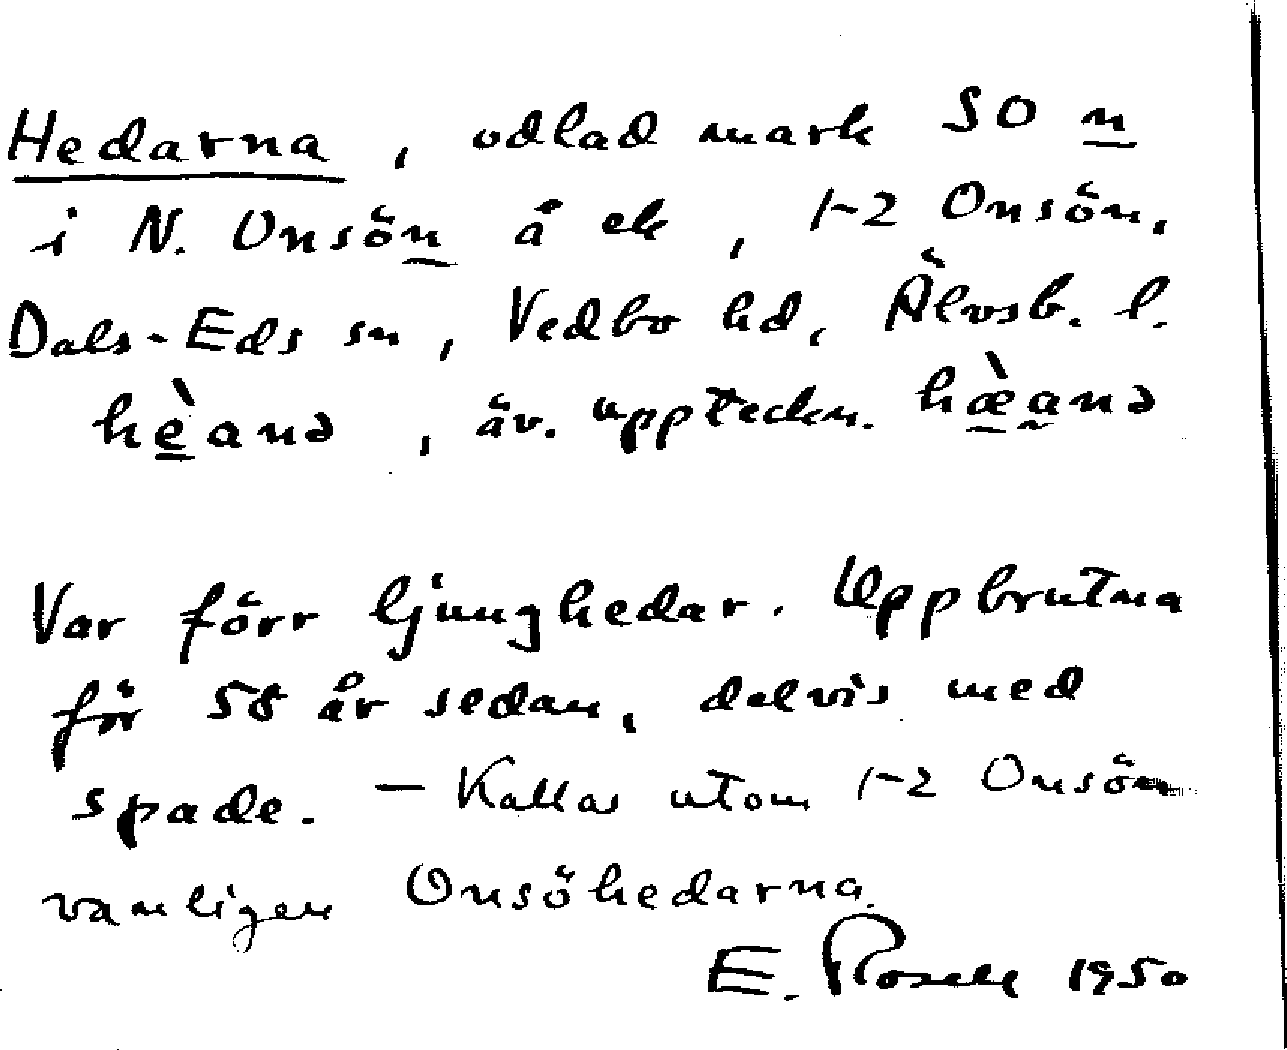 Hedarna, odlad mark SO n
i N. Onsön å ek, 1-2 Onsön,
Dals-Eds sn, Vedbo hd, Älvsb. l.
hèanə, äv. uppteckn. hæ̀anə

Var förr ljunghedar. Uppbrutna
för 58 år sedan, delvis med
spade. — Kallas utom 1-2 Onsön
vanligen Onsöhedarna.
E. Rosell 1950